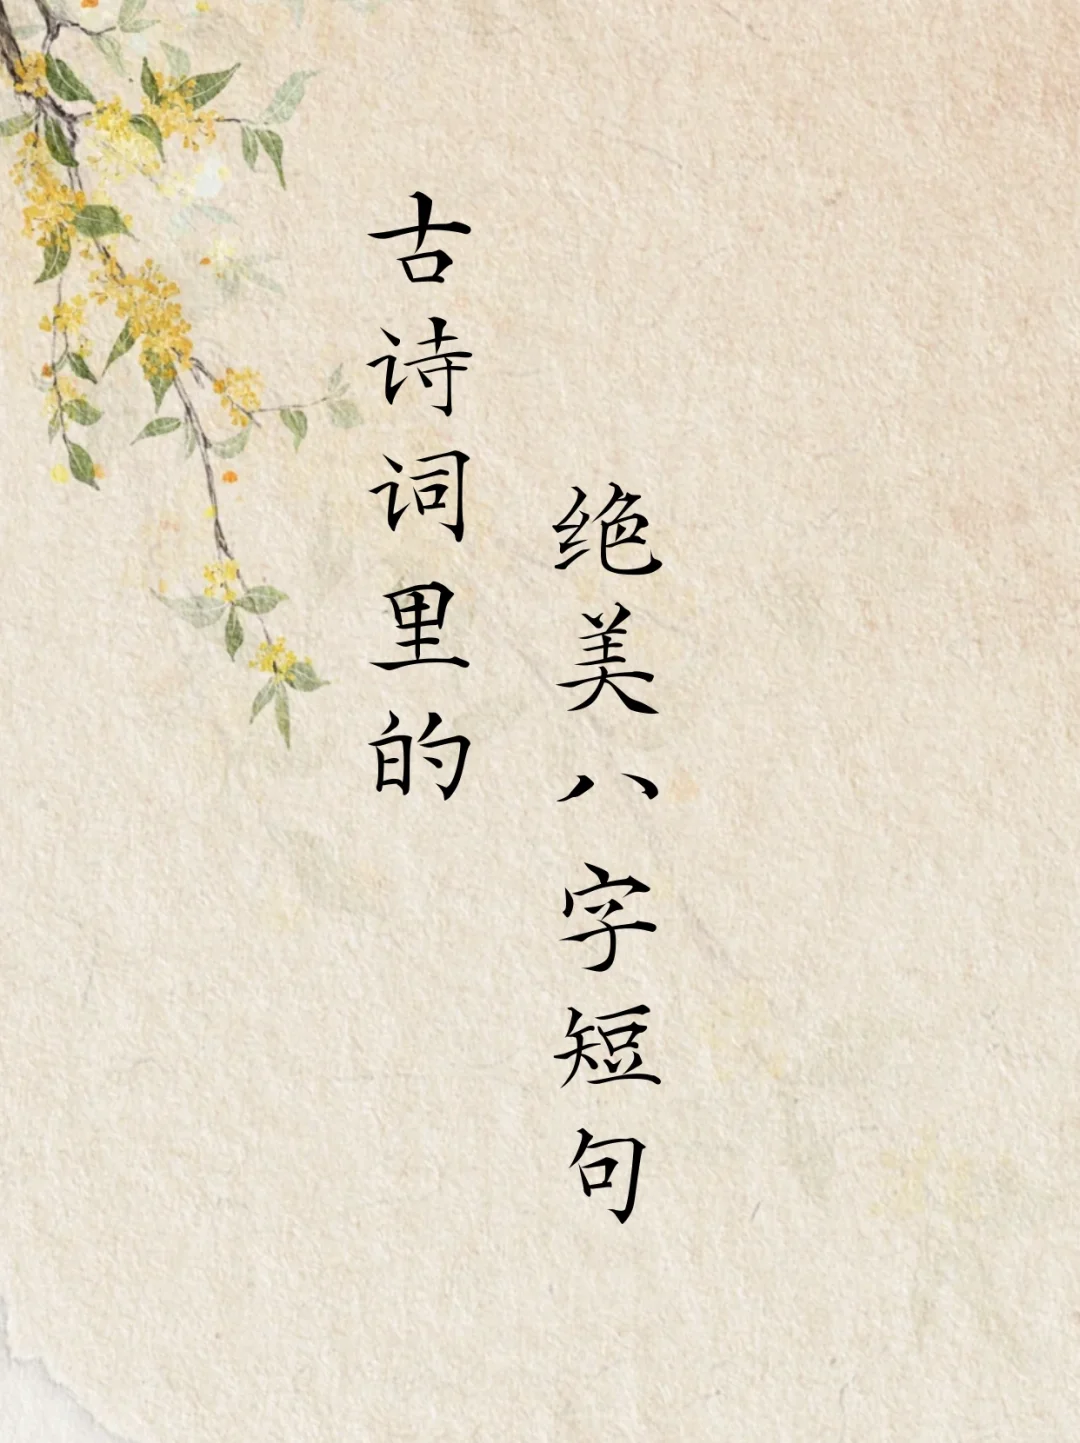 古诗词里的
绝美八字短句